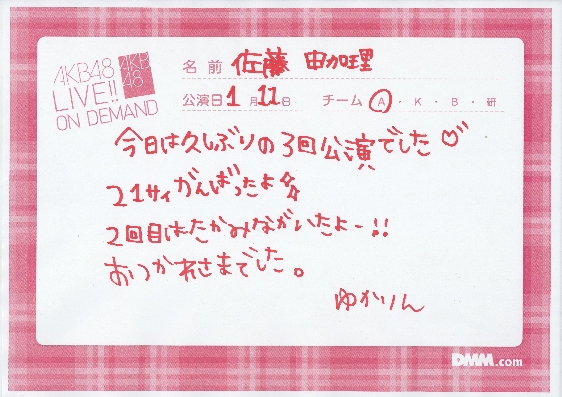 AKB48
LIVE!!
ON DEMAND
AKB
48
名前 佐藤 由加理
公演日 1月11日 チーム A・K・B・研
今日は久しぶりの3回公演でした♡
21サイがんばったよ☆
2回目はたかみながいたよー!!
おつかれさまでした。
ゆかりん
DMM.com